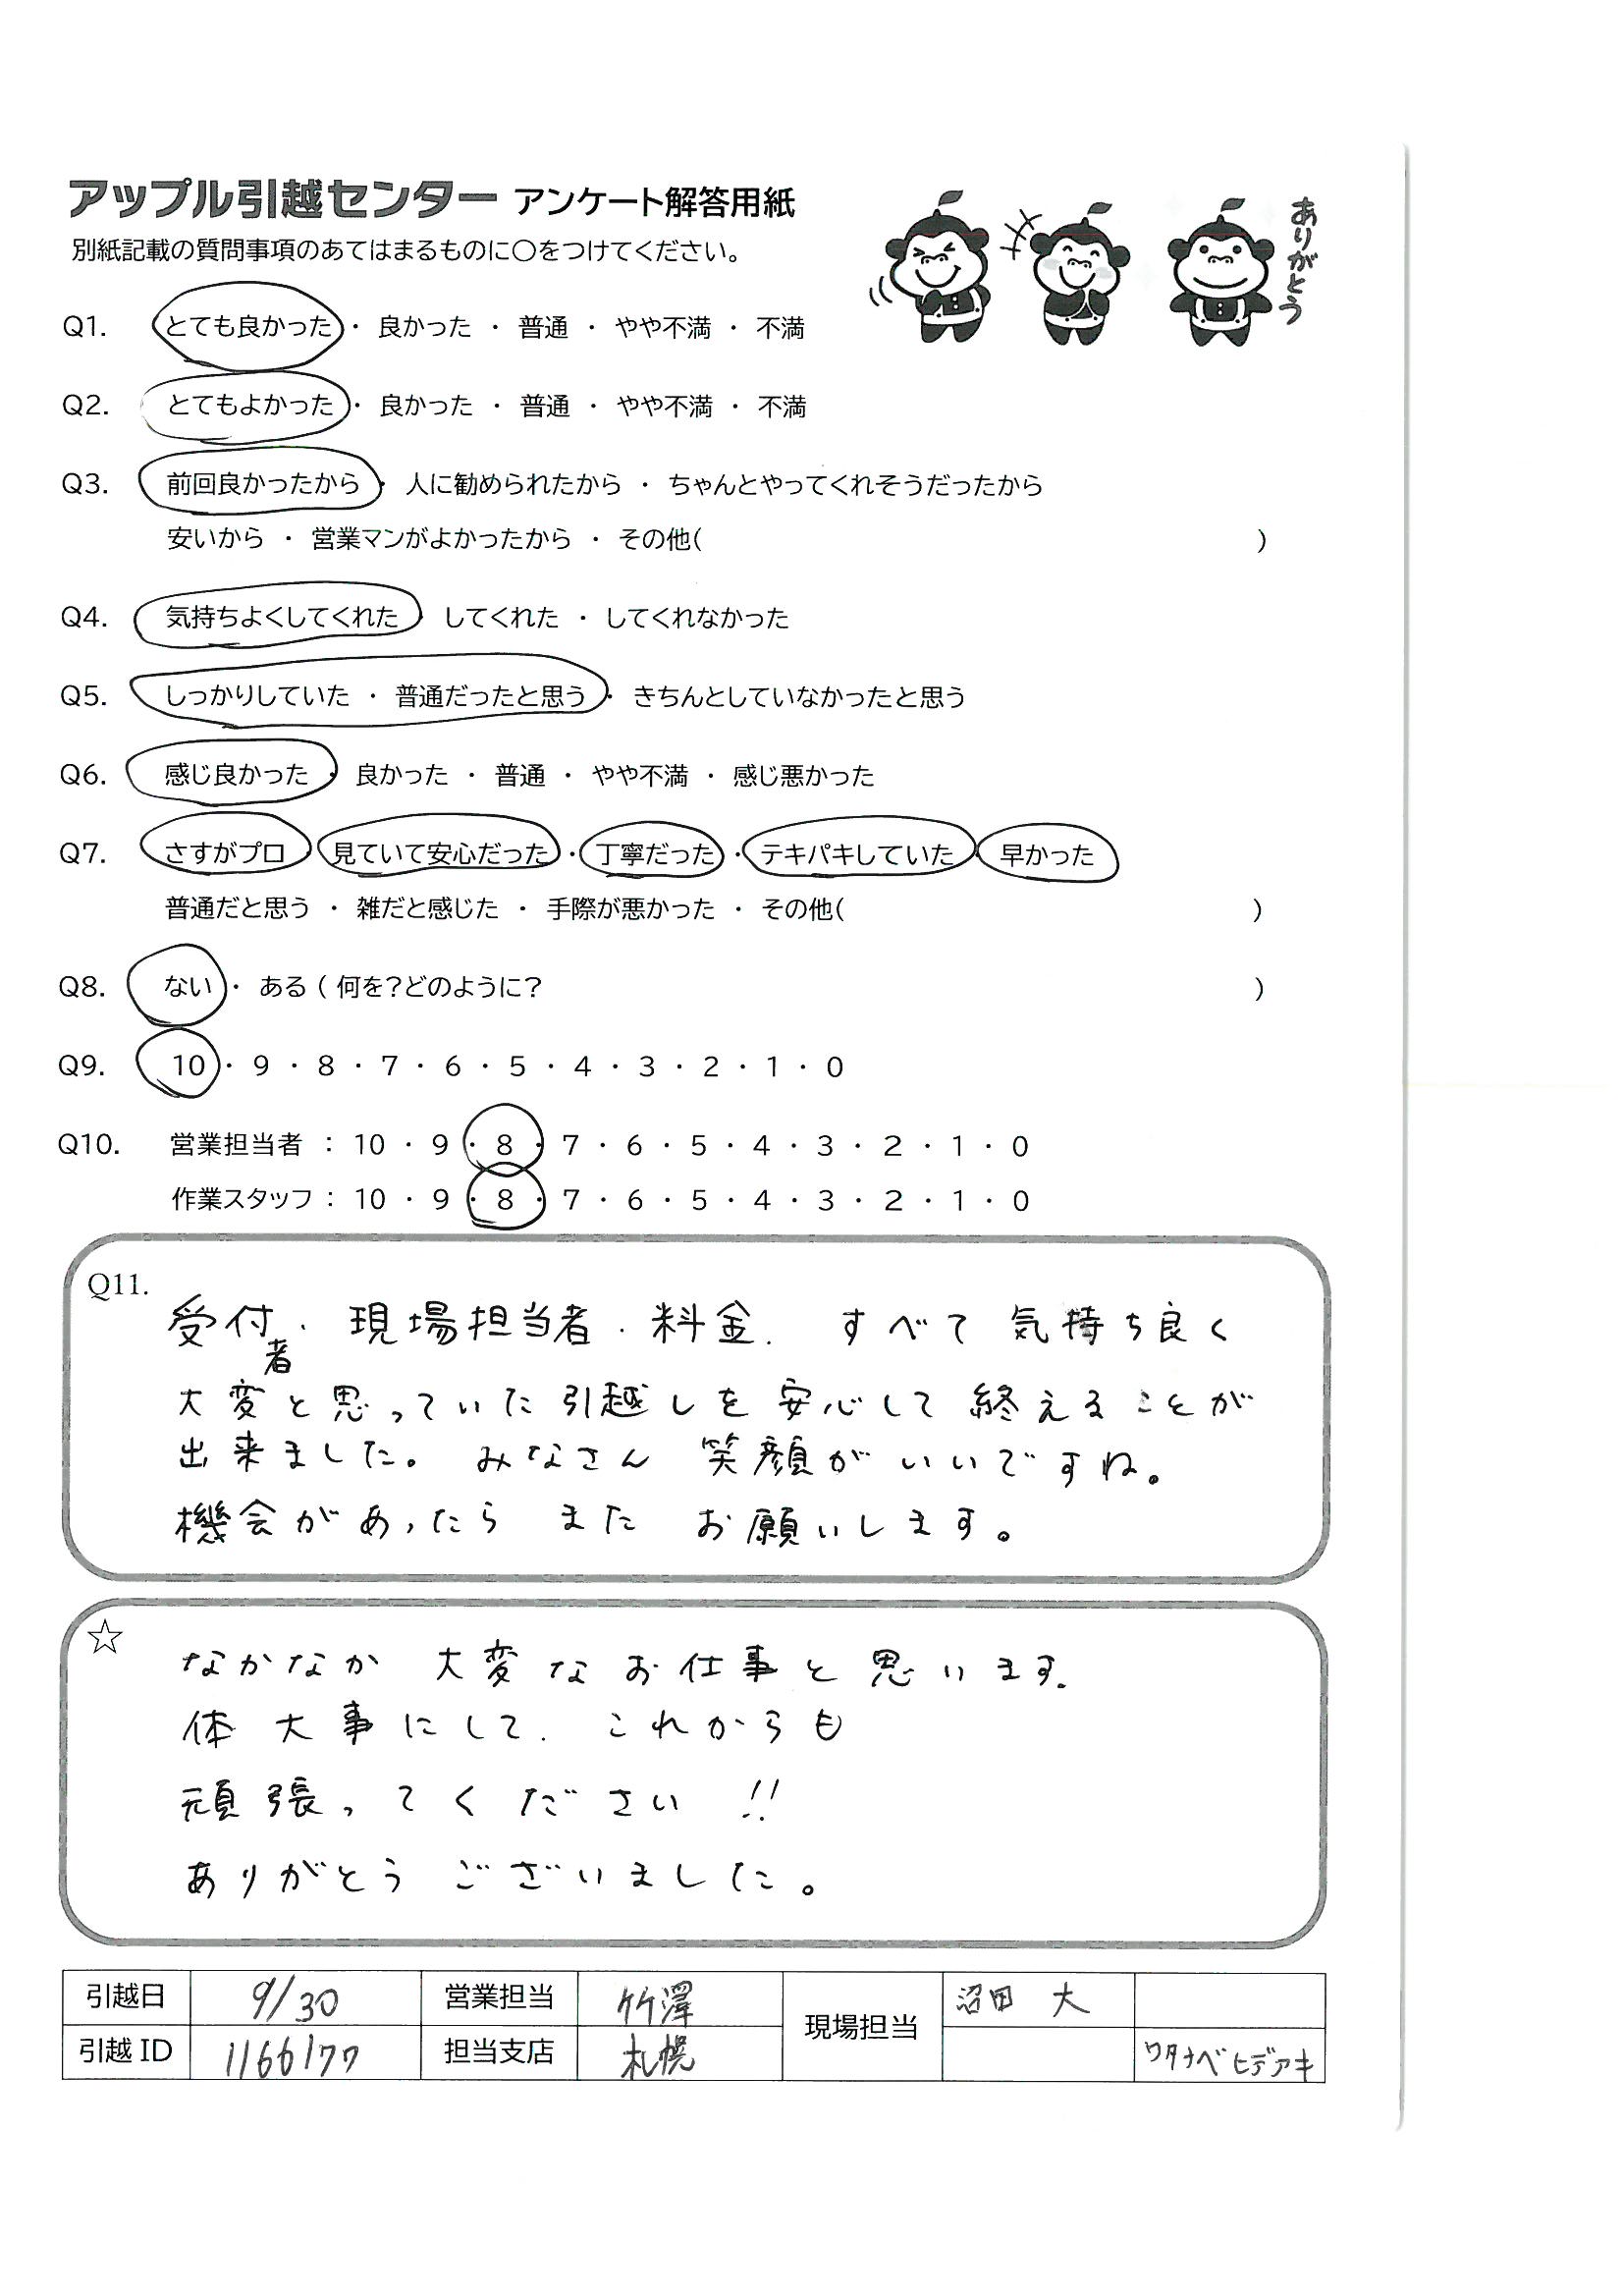 アップル引越センター アンケート解答用紙
ありがとう
別紙記載の質問事項のあてはまるものに○をつけてください。
Q1. とても良かった ・ 良かった ・ 普通 ・ やや不満 ・ 不満
Q2. とてもよかった ・ 良かった ・ 普通 ・ やや不満 ・ 不満
Q3. 前回良かったから ・ 人に勧められたから ・ ちゃんとやってくれそうだったから
安いから ・ 営業マンがよかったから ・ その他( )
Q4. 気持ちよくしてくれた ・ してくれた ・ してくれなかった
Q5. しっかりしていた ・ 普通だったと思う ・ きちんとしていなかったと思う
Q6. 感じ良かった ・ 良かった ・ 普通 ・ やや不満 ・ 感じ悪かった
Q7. さすがプロ ・ 見ていて安心だった ・ 丁寧だった ・ テキパキしていた ・ 早かった
普通だと思う ・ 雑だと感じた ・ 手際が悪かった ・ その他( )
Q8. ない ・ ある ( 何を?どのように? )
Q9. 10 ・ 9 ・ 8 ・ 7 ・ 6 ・ 5 ・ 4 ・ 3 ・ 2 ・ 1 ・ 0
Q10. 営業担当者 : 10 ・ 9 ・ 8 ・ 7 ・ 6 ・ 5 ・ 4 ・ 3 ・ 2 ・ 1 ・ 0
作業スタッフ : 10 ・ 9 ・ 8 ・ 7 ・ 6 ・ 5 ・ 4 ・ 3 ・ 2 ・ 1 ・ 0
Q11.
受付者・現場担当者・料金. すべて気持ち良く
大変と思っていた引越しを安心して終えることが
出来ました。みなさん 笑顔がいいですね。
機会があったら また お願いします。
☆
なかなか 大変なお仕事と思います.
体 大事にして. これからも
頑張ってください!!
ありがとう ございました。
引越日 9/30 営業担当 竹澤 現場担当 沼田 大
引越ID 1166177 担当支店 札幌 ワタナベヒデアキ